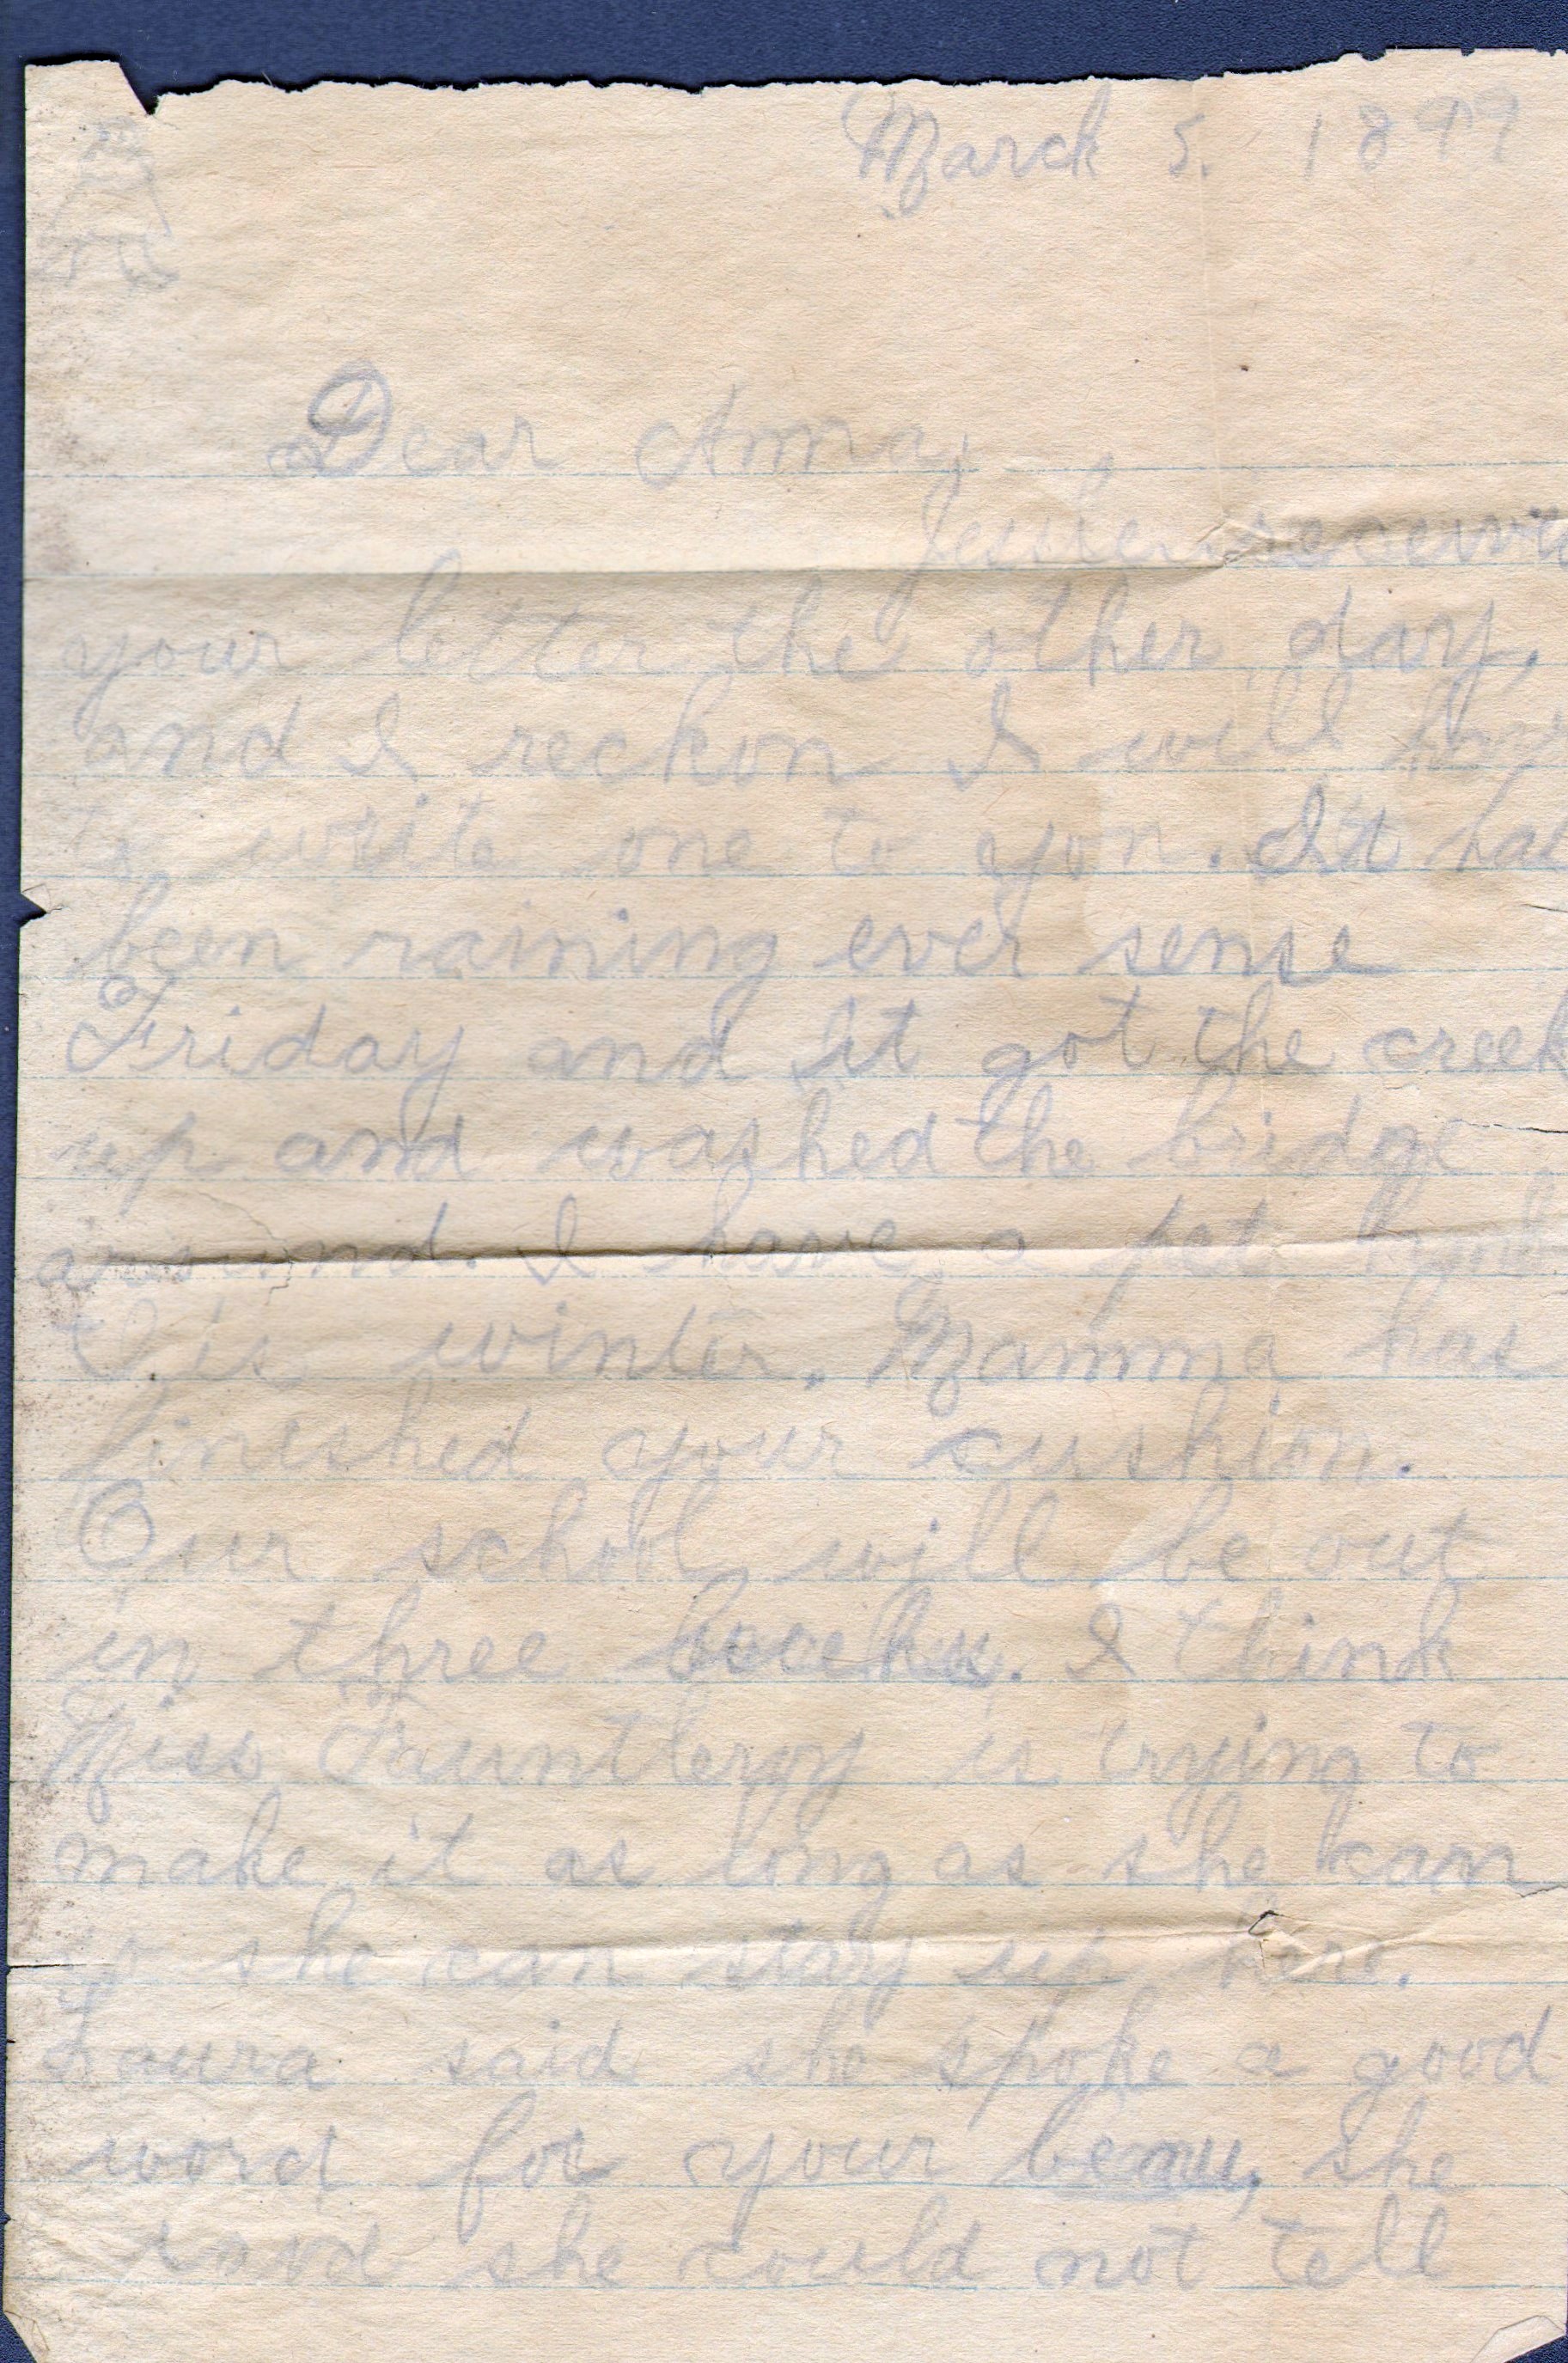 March 5. 1899
Dear Anna,
received
your letter the other day,
and I reckon I will have
to write one to you. It has
been raining ever sense
Friday and it got the creek
up and washed the bridge
around. I have a pet
winter. Mamma has
fineshed your cushion.
Our school will be out
in three weeks. I think
Miss Fauntleroy is trying to
make it as long as she can
so she can stay up here.
Laura said she spoke a good
word for your beau, she
said she could not tell